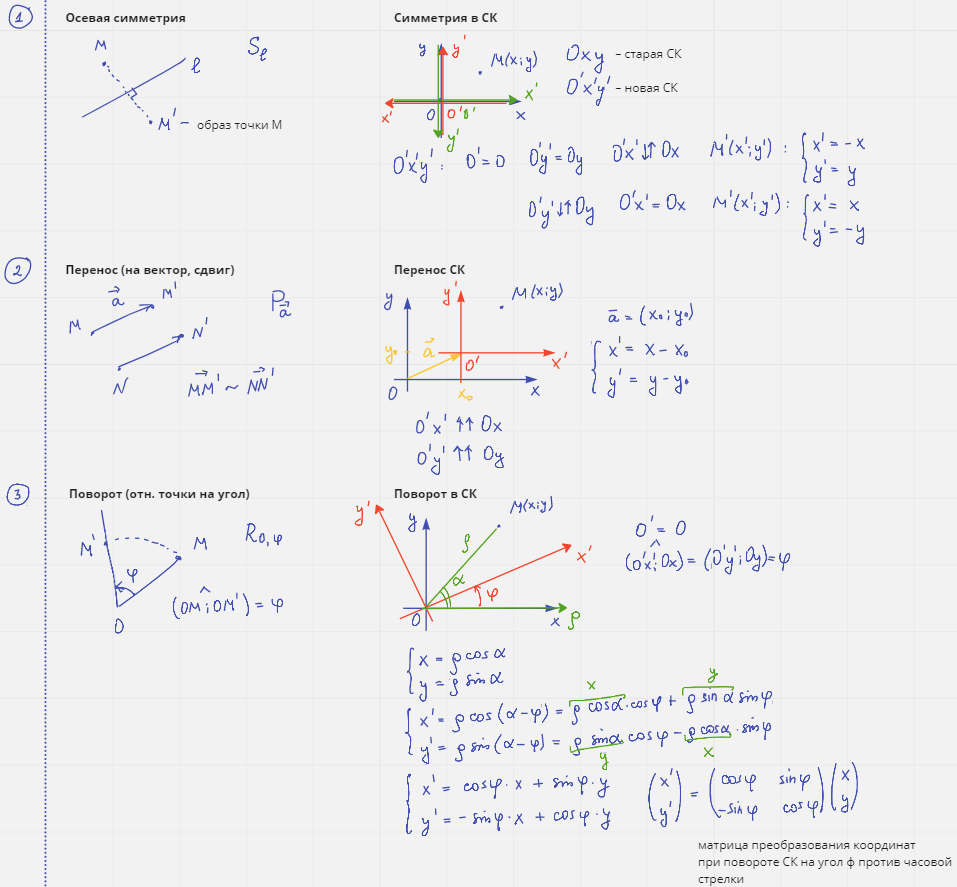 1
Осевая симметрия
M
S_l
l
M' – образ точки М
Симметрия в СК
y y'
M(x;y)
Oxy – старая СК
O'x'y' – новая СК
x'
x' O O' O' x
y'
O'x'y': O' = O O'y' = Oy O'x' ↓↑ Ox M'(x';y'): { x' = -x
y' = y
O'y' ↓↑ Oy O'x' = Ox M'(x';y'): { x' = x
y' = -y
2
Перенос (на вектор, сдвиг)
a⃗ M' P_a⃗
M
N'
N MM'⃗ ~ NN'⃗
Перенос СК
y y' M(x;y)
y₀ a⃗ O' x'
O x₀ x
a̅ = (x₀; y₀)
{ x' = x - x₀
y' = y - y₀
O'x' ↑↑ Ox
O'y' ↑↑ Oy
3
Поворот (отн. точки на угол)
M' M R_O,φ
φ
(OM ^; OM') = φ
O
Поворот в СК
y' y M(x;y)
ρ x'
α φ
O x ρ
O' = O
(O'x' ^; Ox) = (O'y'; Oy) = φ
{ x = ρ cos α
y = ρ sin α
x y
{ x' = ρ cos (α-φ) = ρ cosα · cosφ + ρ sin α sinφ
y' = ρ sin (α-φ) = ρ sinα cosφ - ρ cosα · sinφ
y x
{ x' = cosφ · x + sinφ · y
y' = -sinφ · x + cosφ · y
(x' y') = (cosφ sinφ -sinφ cosφ) (x y)
матрица преобразования координат
при повороте СК на угол ф против часовой
стрелки